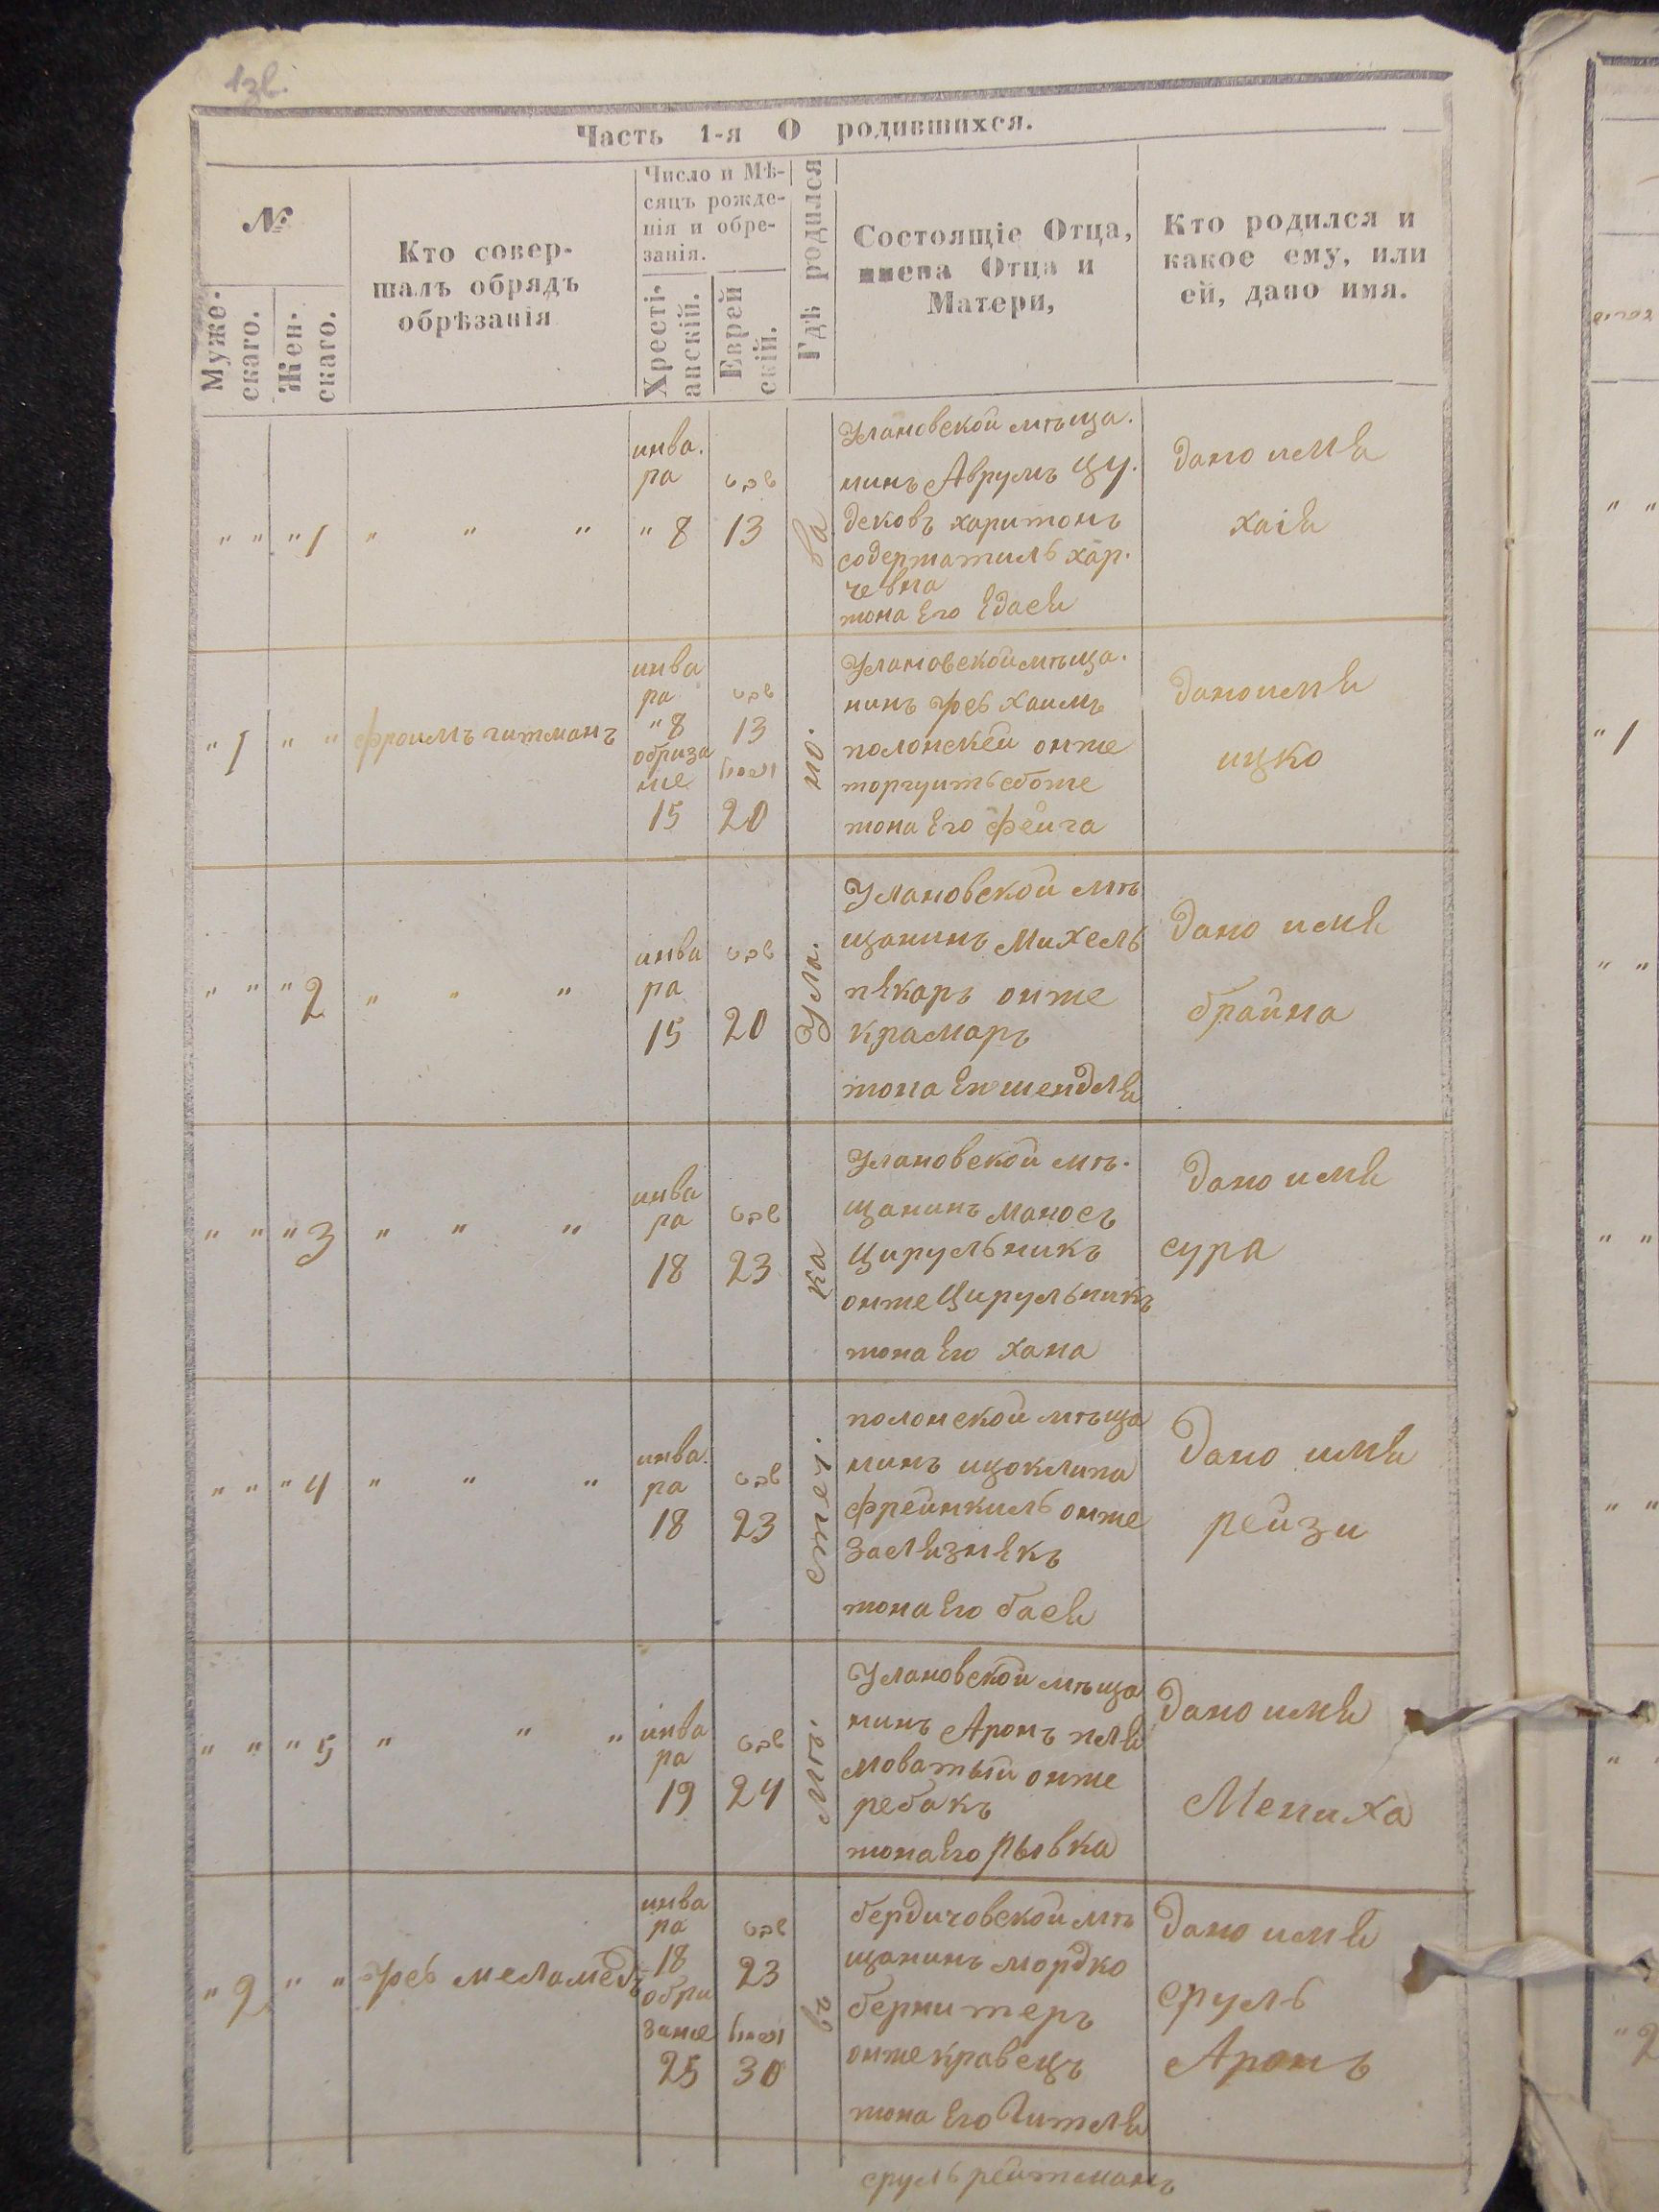 Часть 1-я О родившихся.
№
Муже-
скаго.
Жен-
скаго.
Кто совер-
шалъ обрядъ
обрѣзанія
Число и Мѣ-
сяцъ рожде-
нія и обре-
занія.
Хресті-
анскій.
Еврей
скій.
Гдѣ родился
Состоящіе Отца,
имена Отца и
Матери,
Кто родился и
какое ему, или
ей, дано имя.
въ мѣс. стеч. ка Ула. но. ва
" " "1 " " "
инва.
ра
" 8
שבט
13
Улановской мѣща.
нинъ Аврумъ Цу.
дековъ харитонъ
содержатиль хар.
чевна
жона Его Едася
дано имя
хаія
"1 " " фроимъ гитманъ
инва
ра
" 8
обриза
ние
15
שבט
13
20
Улановской мѣща.
нинъ Хаимъ
полонскей онже
торгуить сбоже
жона Его фейга
дано имя
ицко
" " "2 " " "
инва
ра
15
שבט
20
Улановской мѣ
щанинъ Михель
пекарь онже
крамарь
жона Ею шендля
дано имя
брайна
" " "3 " " "
инва
ра
18
שבט
23
Улановской мѣ.
щанинъ маносъ
Цирульникъ
онже Цирульникъ
жона Его хана
дано имя
сура
" " "4 " " "
инва.
ра
18
שבט
23
полонской мѣща
нинъ ицоклипа
фреинкиль онже
заслизнекъ
жона Его бася
дано имя
рейзи
" " "5 " " "
инва
ра
19
שבט
24
Улановской мѣща
нинъ Аронъ пля
моватый онже
ребакъ
жона Его Рывка
дано имя
Мениха
"2 " " меламедъ
инва
ра
18
обри
зание
25
שבט
23
30
бердичовской мѣ
щанинъ мордко
бернштеръ
онже кравецъ
жона Его Гитля
дано имя
сруль
Аронъ
сруль рейтманъ